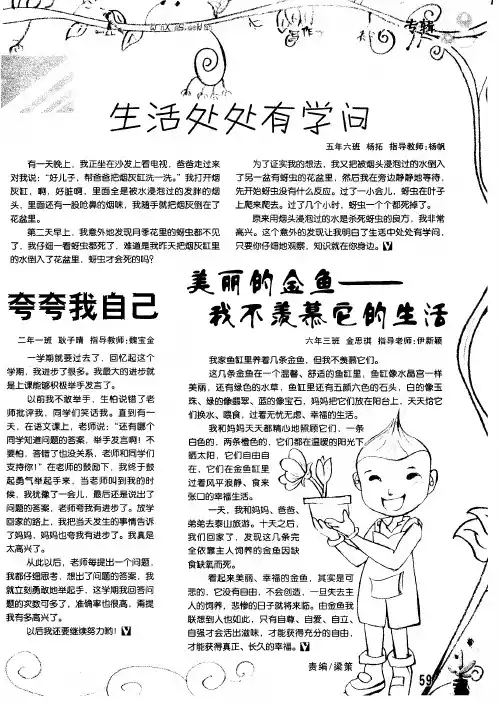 写作
专辑
生活处处有学问
五年六班 杨拓 指导教师:杨帆
有一天晚上，我正坐在沙发上看电视，爸爸走过来
对我说：“好儿子，帮爸爸把烟灰缸洗一洗。”我打开烟
灰缸，啊，好脏啊，里面全是被水浸泡过的发胖的烟
头，里面还有一股呛鼻的烟味，我随手就把烟灰倒在了
花盆里。
第二天早上，我意外地发现月季花里的蚜虫都不见
了，我仔细一看蚜虫都死了，难道是我昨天把烟灰缸里
的水倒入了花盆里，蚜虫才会死的吗？
为了证实我的想法，我又把被烟头浸泡过的水倒入
了另一盆有蚜虫的花盆里，然后我在旁边静静地等待，
先开始蚜虫没有什么反应。过了一小会儿，蚜虫在叶子
上爬来爬去。过了几个小时，蚜虫一个个都死掉了。
原来用烟头浸泡过的水是杀死蚜虫的良方，我非常
高兴。这个意外的发现让我明白了生活中处处有学问，
只要你仔细地观察，知识就在你身边。
夸夸我自己
二年一班 耿子晴 指导教师:魏宝金
一学期就要过去了，回忆起这个
学期，我进步了很多。我最大的进步就
是上课能够积极举手发言了。
以前我不敢举手，生怕说错了老
师批评我，同学们笑话我。直到有一
天，在语文课上，老师说：“还有哪个
同学知道问题的答案，举手发言啊！不
要怕，答错了也没关系，老师和同学们
支持你！”在老师的鼓励下，我终于鼓
起勇气举起手来，当老师叫到我的时
候，我犹豫了一会儿，最后还是说出了
问题的答案，老师夸我有进步了。放学
回家的路上，我把当天发生的事情告诉
了妈妈，妈妈也夸我有进步了。我真是
太高兴了。
从此以后，老师每提出一个问题，
我都仔细思考，想出了问题的答案，我
就立刻勇敢地举起手，这学期我回答问
题的次数可多了，准确率也很高，甭提
我有多高兴了。
以后我还要继续努力哟！
美丽的金鱼——
我不羡慕它的生活
六年三班 金思琪 指导老师:伊新颖
我家鱼缸里养着几条金鱼，但我不羡慕它们。
这几条金鱼在一个温馨、舒适的鱼缸里，鱼缸像水晶宫一样
美丽，还有绿色的水草，鱼缸里还有五颜六色的石头，白的像玉
珠、绿的像翡翠、蓝的像宝石，妈妈把它们放在阳台上，天天给它
们换水、喂食，过着无忧无虑、幸福的生活。
我和妈妈天天都精心地照顾它们，一条
白色的，两条橙色的，它们都在温暖的阳光下
晒太阳，它们自由自
在，它们在金鱼缸里
过着风平浪静、食来
张口的幸福生活。
一天，我和妈妈、爸爸、
弟弟去泰山旅游。十天之后，
我们回家了，发现这几条完
全依靠主人饲养的金鱼因缺
食缺氧而死。
看起来美丽、幸福的金鱼，其实是可
悲的，它没有自由，不会创造，一旦失去主
人的饲养，悲惨的日子就将来临。由金鱼我
联想到人也如此，只有自尊、自爱、自立、
自强才会活出滋味，才能获得充分的自由，
才能获得真正、长久的幸福。
责编/梁策
59